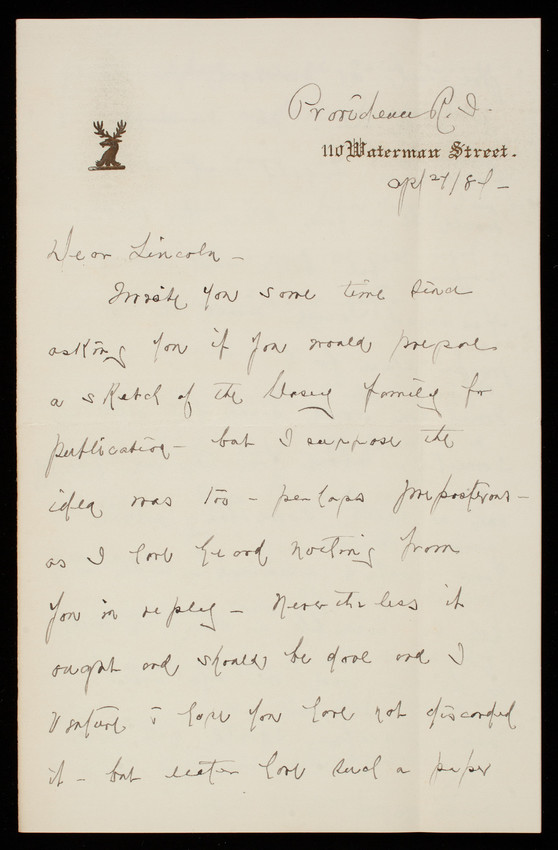 Providence R. I.
110 Waterman Street.
Apl 27/87 -
Dear Lincoln -
I wrote you some time since
asking you if you would prepare
a sketch of the Casey family for
publication - but I suppose the
idea was too - perhaps preposterous -
as I have heard nothing from
you in reply - Nevertheless it
ought and should be done and I
venture to hope you have not discarded
it - but have such a paper